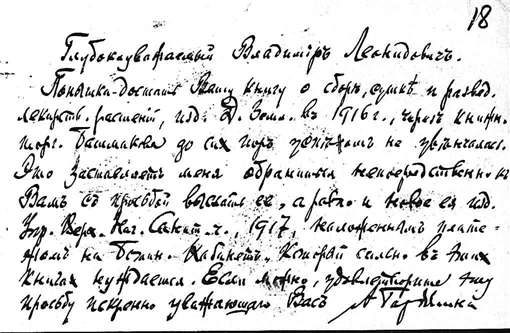 18
Глубокоуважаемый Владиміръ Леонидовичъ.
Попытка достать Вашу книгу о сборѣ, сушкѣ и развед.
лекарств. растеній, изд. Д. Земл. въ 1916 г., черезъ книжн.
торг. Башмакова до сих поръ успѣхомъ не увѣнчалась.
Это заставляетъ меня обратиться непосредственно къ
Вамъ съ просьбой выслать ее, а равно и новое ея изд.
Упр. Верх. Нач. Санит. ч., 1917, наложеннымъ плате-
жомъ на Ботан. Кабинетъ, который сильно въ этих
книгах нуждается. Если можно, удовлетворите эту
просьбу искренно уважающаго Васъ